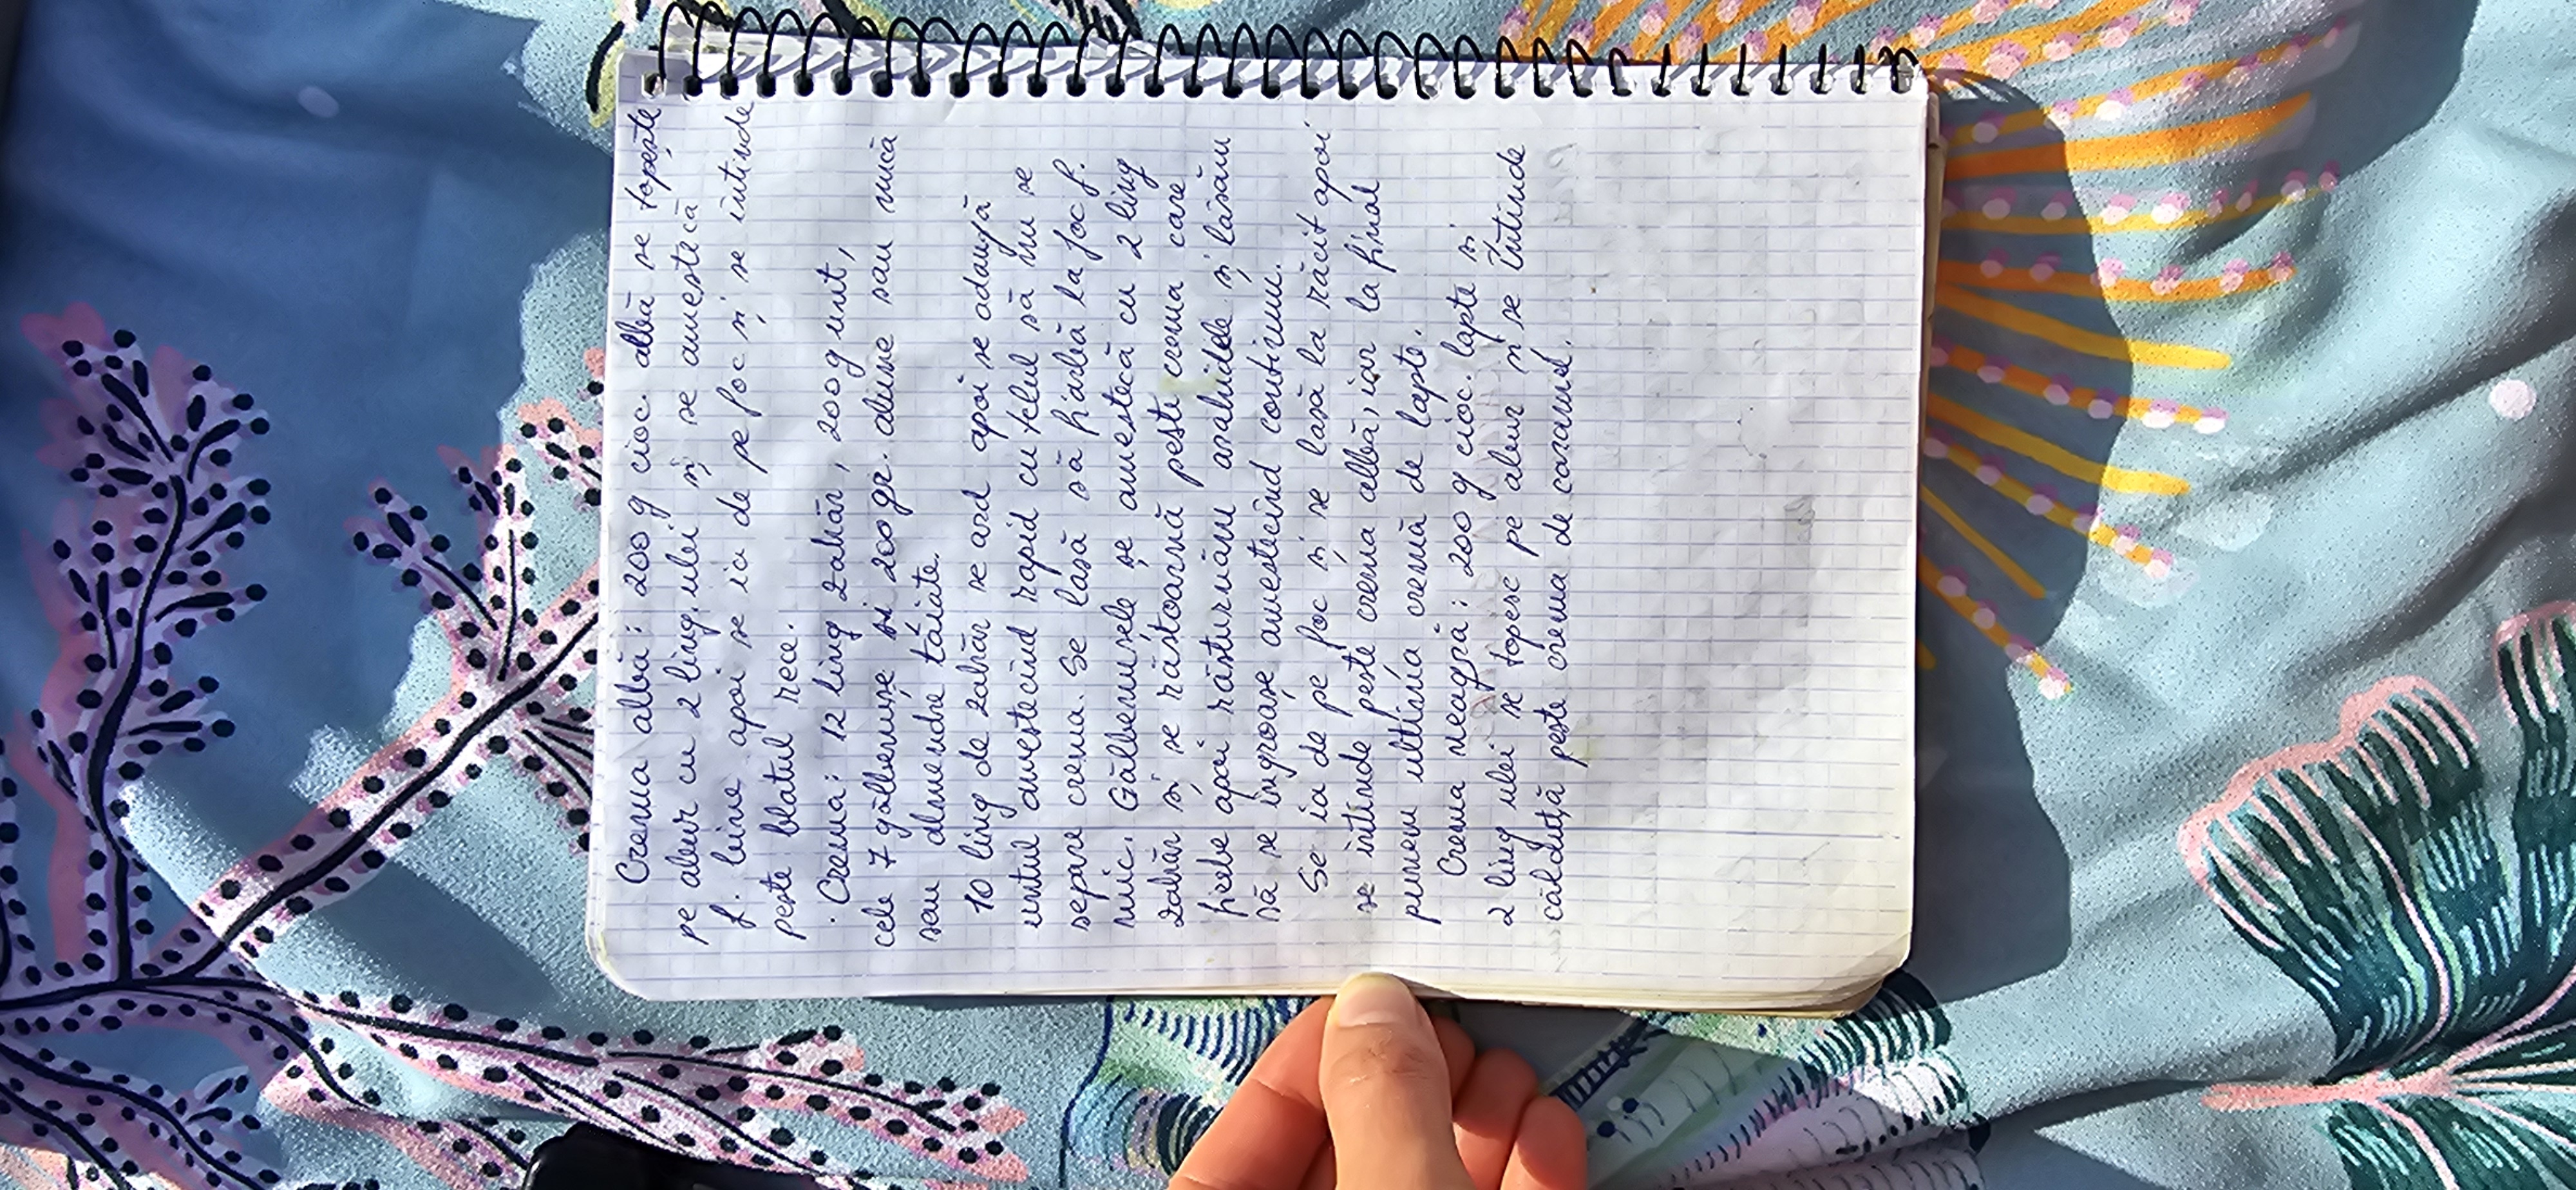 Crema albă: 200 g cioc. albă se topește
pe abur cu 2 ling. ulei și se amestecă
f. bine apoi se ia de pe foc și se întinde
peste blatul rece.
· Crema: 12 ling zahăr, 200 g unt,
cele 7 gălbenușe și 200 gr. alune sau nucă
sau almendre tăiate.
10 ling de zahăr se ard apoi se adaugă
untul amestecînd rapid cu telul să nu se
separe crema. Se lasă să fiarbă la foc f.
mic. Gălbenușele se amestecă cu 2 ling
zahăr și se răstoarnă peste crema care
fierbe apoi răsturnăm arahidele și lăsăm
să se îngroașe amestecînd continuu.
Se ia de pe foc și se lasă la răcit apoi
se întinde peste crema albă, iar la final
punem ultima cremă de lapte.
Crema neagră: 200 g cioc. lapte și
2 ling ulei se topesc pe abur și se întinde
călduță peste crema de caramel.